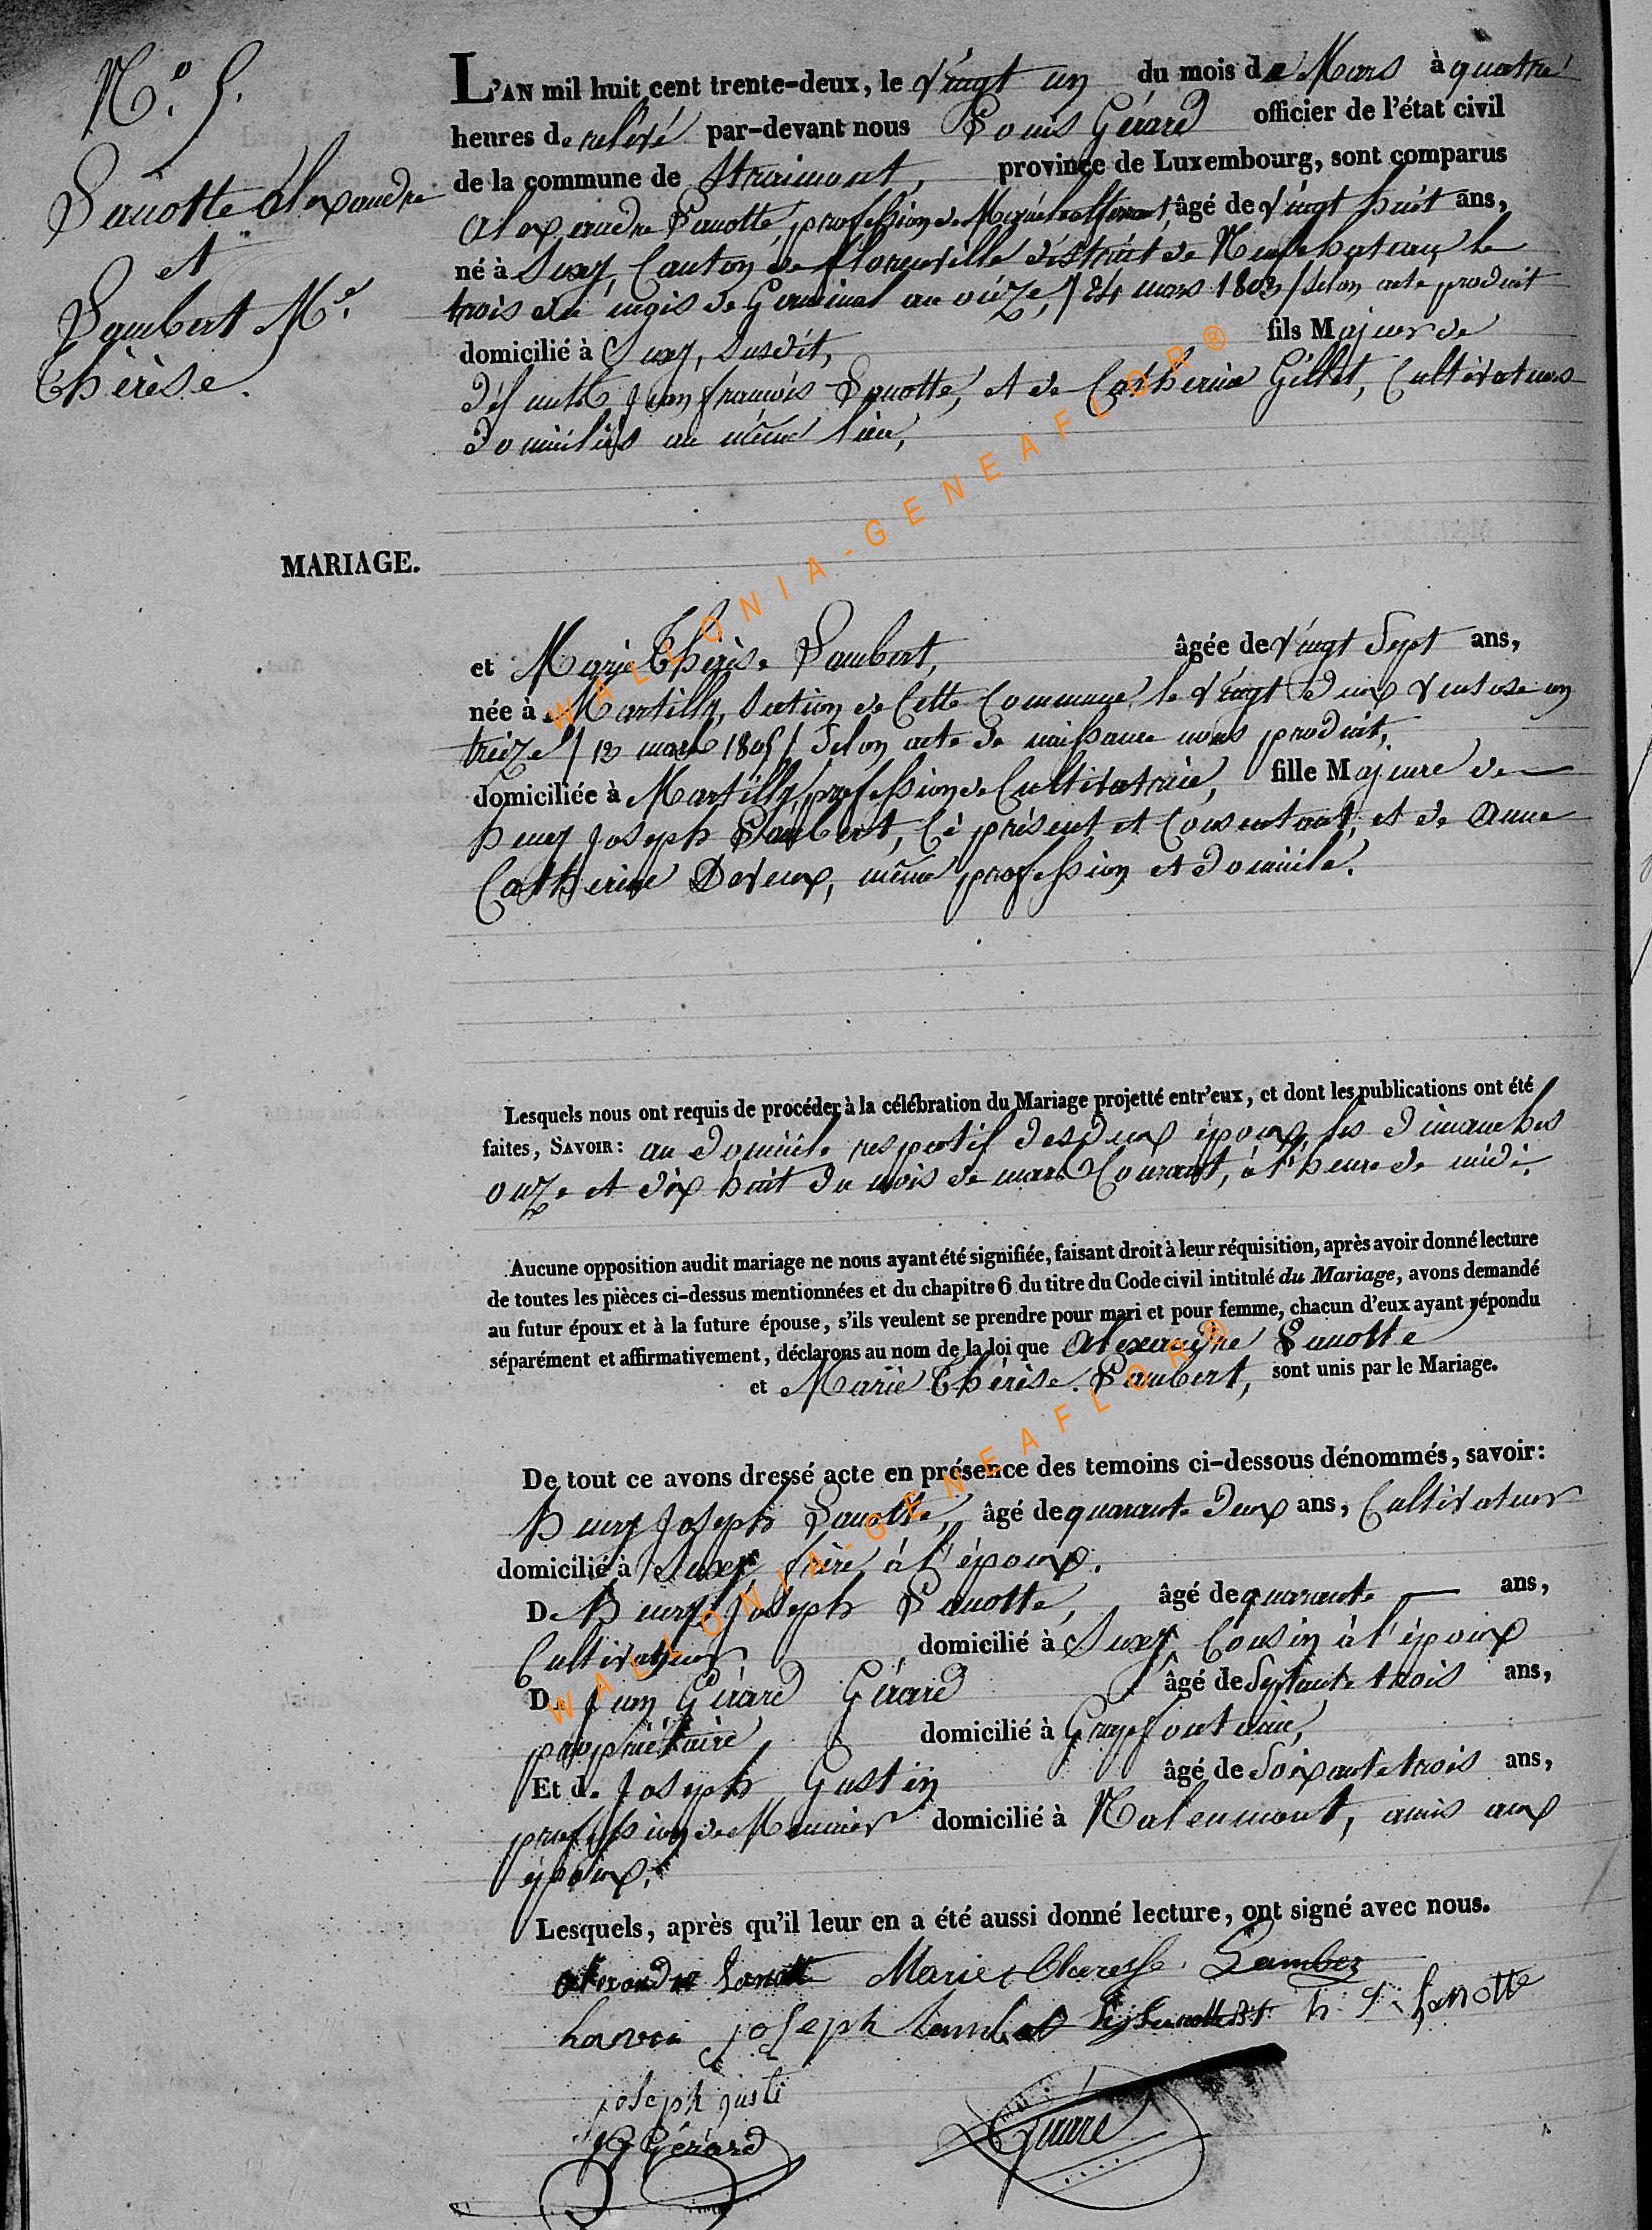 N.º 5.
Lanotte Alexandre
et
Lambert M.e
Thérèse.
MARIAGE.
L'AN mil huit cent trente-deux, le vingt un du mois de Mars à quatre
heures de relevé par-devant nous Louis Gérard officier de l'état civil
de la commune de Straimont, province de Luxembourg, sont comparus
Alexandre Lanotte, profession de Maréchal ferrant, âgé de vingt huit ans,
né à Suxy, Canton de florenville district de Neufchateau le
trois du mois de Germinal an onze, / 24 mars 1803 / selon acte produit
domicilié à Suxy, susdit, fils Majeur de
défunt Jean françois Lanotte, et de Catherine Gillet, Cultivateurs
domiciliés au même lieu,
et Marie Thérèse Lambert, âgée de vingt sept ans,
née à Martilly, Section de Cette Commune le vingt deux ventose an
treize / 13 mars 1805 / selon acte de naissance nous produit,
domiciliée à Martilly, profession de Cultivatrice, fille Majeure de
henry Joseph Lambert, Cè présent et Consentant, et de Anne
Catherine Deveux, même profession et domicile.
Lesquels nous ont requis de procéder à la célébration du Mariage projetté entr'eux, et dont les publications ont été
faites, SAVOIR : au domicile respectif des deux époux, les dimanches
onze et dix huit du mois de mars Courant, à l'heure de midi.
Aucune opposition audit mariage ne nous ayant été signifiée, faisant droit à leur réquisition, après avoir donné lecture
de toutes les pièces ci-dessus mentionnées et du chapitre 6 du titre du Code civil intitulé du Mariage, avons demandé
au futur époux et à la future épouse, s'ils veulent se prendre pour mari et pour femme, chacun d'eux ayant répondu
séparément et affirmativement, déclarons au nom de la loi que Alexandre Lanotte
et Marie Thérèse Lambert, sont unis par le Mariage.
De tout ce avons dressé acte en présence des temoins ci-dessous dénommés, savoir :
henry Joseph Lanotte, âgé de quarante deux ans, Cultivateur
domicilié à Suxy, frère à l'époux.
De henry Joseph Lanotte, âgé de quarante ans,
Cultivateur domicilié à Suxy, Cousin à l'époux
De Jean Gérard Gérard âgé de Septante trois ans,
propriétaire domicilié à Grapfontaine,
Et de Joseph Gustin âgé de Soixante trois ans,
profession de Meunier domicilié à Nalenmont, amis aux
époux.
Lesquels, après qu'il leur en a été aussi donné lecture, ont signé avec nous.
alexandre Lanotte Marie Theresse Lamber
joseph Lambert h. J. Lanotte
joseph justi
JG Gérard Gérard
WALLONIA-GENEAFLOR®
WALLONIA-GENEAFLOR®